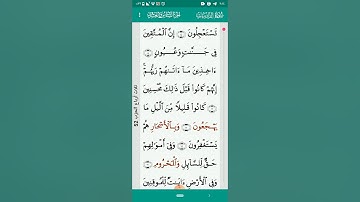 تَسْتَعْجِلُونَ ۝ إِنَّ ٱلْمُتَّقِينَ
فِى جَنَّـٰتٍ وَعُيُونٍ ۝
ءَاخِذِينَ مَآ ءَاتَىٰهُمْ رَبُّهُمْ ۚ
إِنَّهُمْ كَانُوا۟ قَبْلَ ذَٰلِكَ مُحْسِنِينَ
۝ كَانُوا۟ قَلِيلًا مِّنَ ٱلَّيْلِ مَا
يَهْجَعُونَ ۝ وَبِٱلْأَسْحَارِ هُمْ
يَسْتَغْفِرُونَ ۝ وَفِىٓ أَمْوَٰلِهِمْ
حَقٌّ لِّلسَّآئِلِ وَٱلْمَحْرُومِ ۝
وَفِى ٱلْأَرْضِ ءَايَـٰتٌ لِّلْمُوقِنِينَ